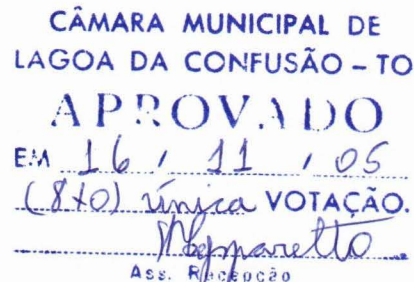 CÂMARA MUNICIPAL DE
LAGOA DA CONFUSÃO – TO
APROVADO
EM 16 / 11 / 05
(8x0) única VOTAÇÃO.
Ass. Recepção